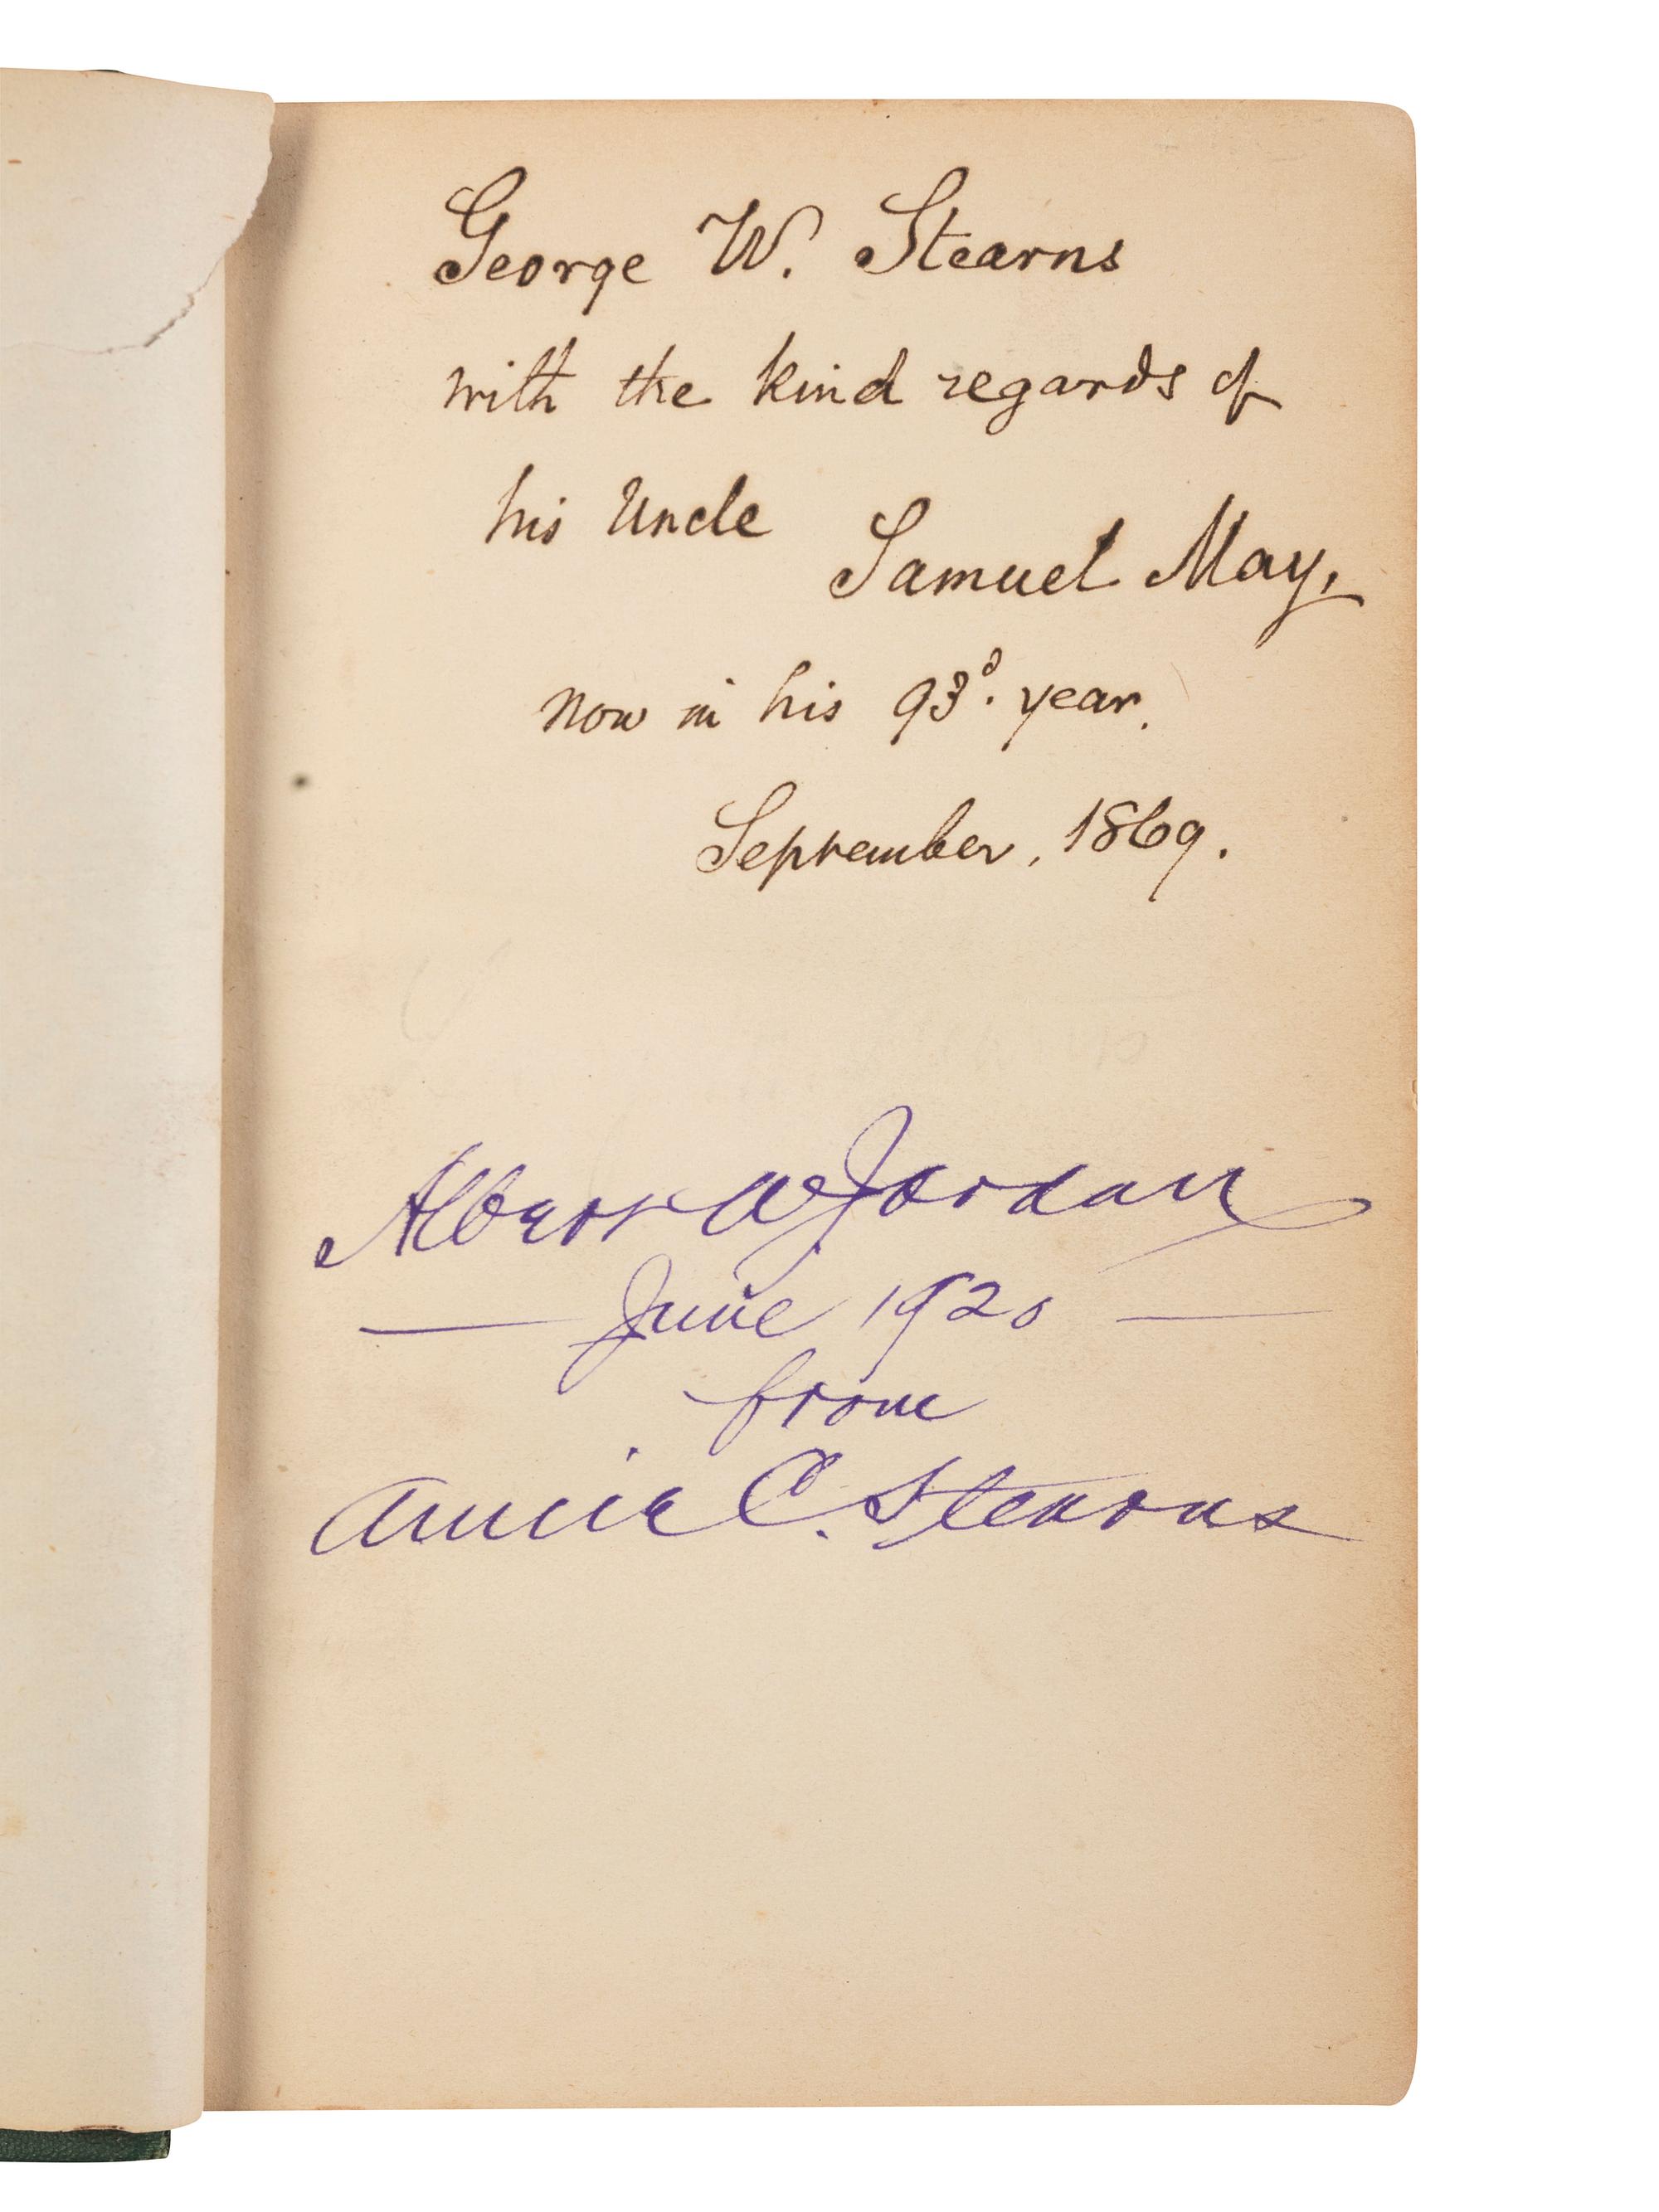 George W. Stearns
with the kind regards of
his Uncle Samuel May,
now in his 93d. year.
September, 1869.
Albert W Jordan
— June 1920 —
from
Annie C. Stearns